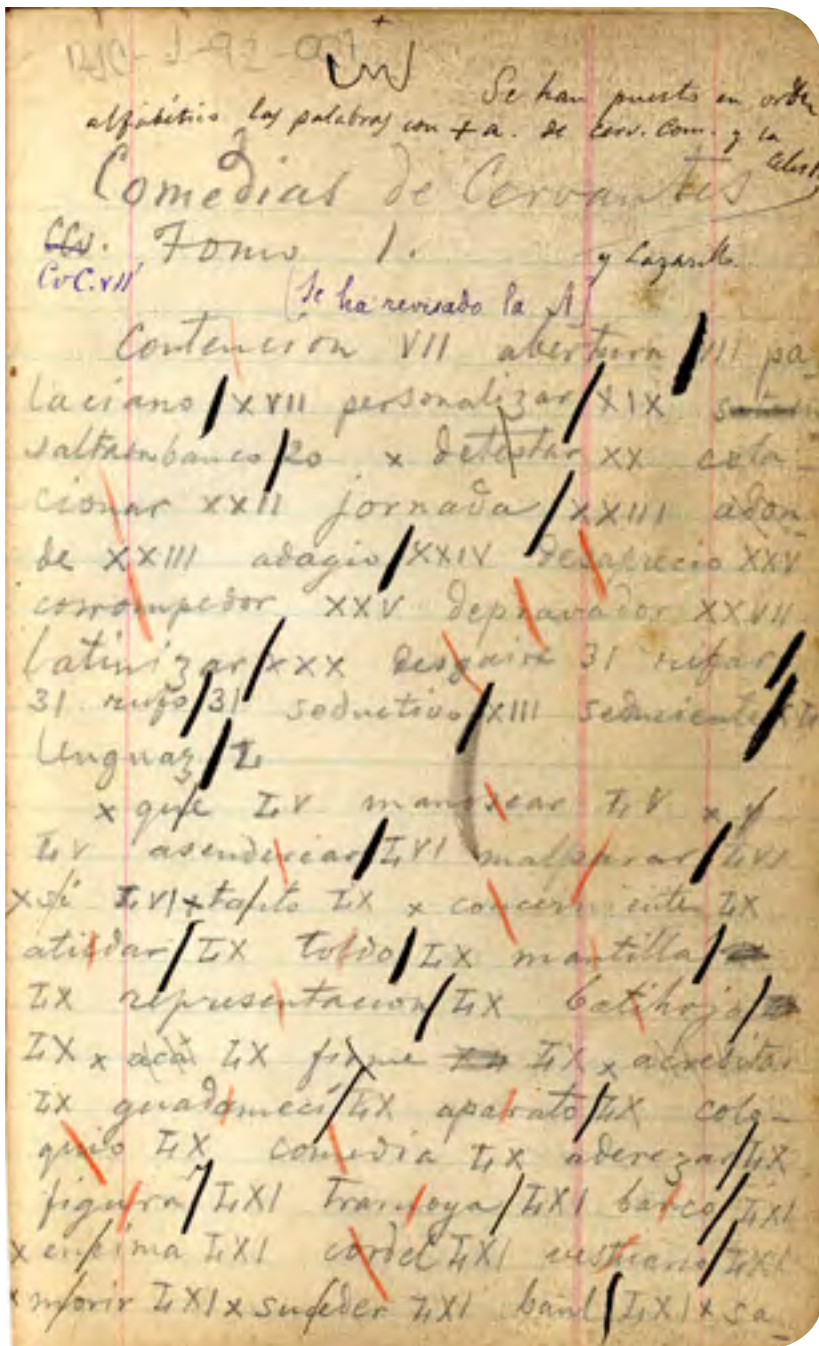 RJC-1-92-001
Se han puesto en orden
alfabético las palabras con + a. de Cerv. Com. y la
Celest.
Comedias de Cervantes
CCv. Tomo 1. y Lazarillo
CvC.VII
(Se ha revisado la A)
Contención VII abertura VII pa-
laciano XVII personalizar XIX
saltaembanco 20 x detestar XX cola-
cionar XXII jornada XXIII adon-
de XXIII adagio XXIV desaprecio XXV
corrompedor XXV depravador XXVII
latinizar XXX desgaire 31 rufar
31 rufo 31 seductivo XIII seduciente
lenguaz L
x que LV manosear LV x y
LV asenderear LVI malparar LVI
x si LVI x tanto LX x concerniente LX
atildar LX toldo LX mantilla
LX representación LX batihoja
LX x acá LX firme LX x acreditar
LX guadamecí LX aparato LX colo-
quio LX comedia LX aderezar LX
figura LXI tramoya LXI barco LXI
x encima LXI cordel LXI vestuario LXI
x morir LXI x suceder LXI baul LXI x sa-